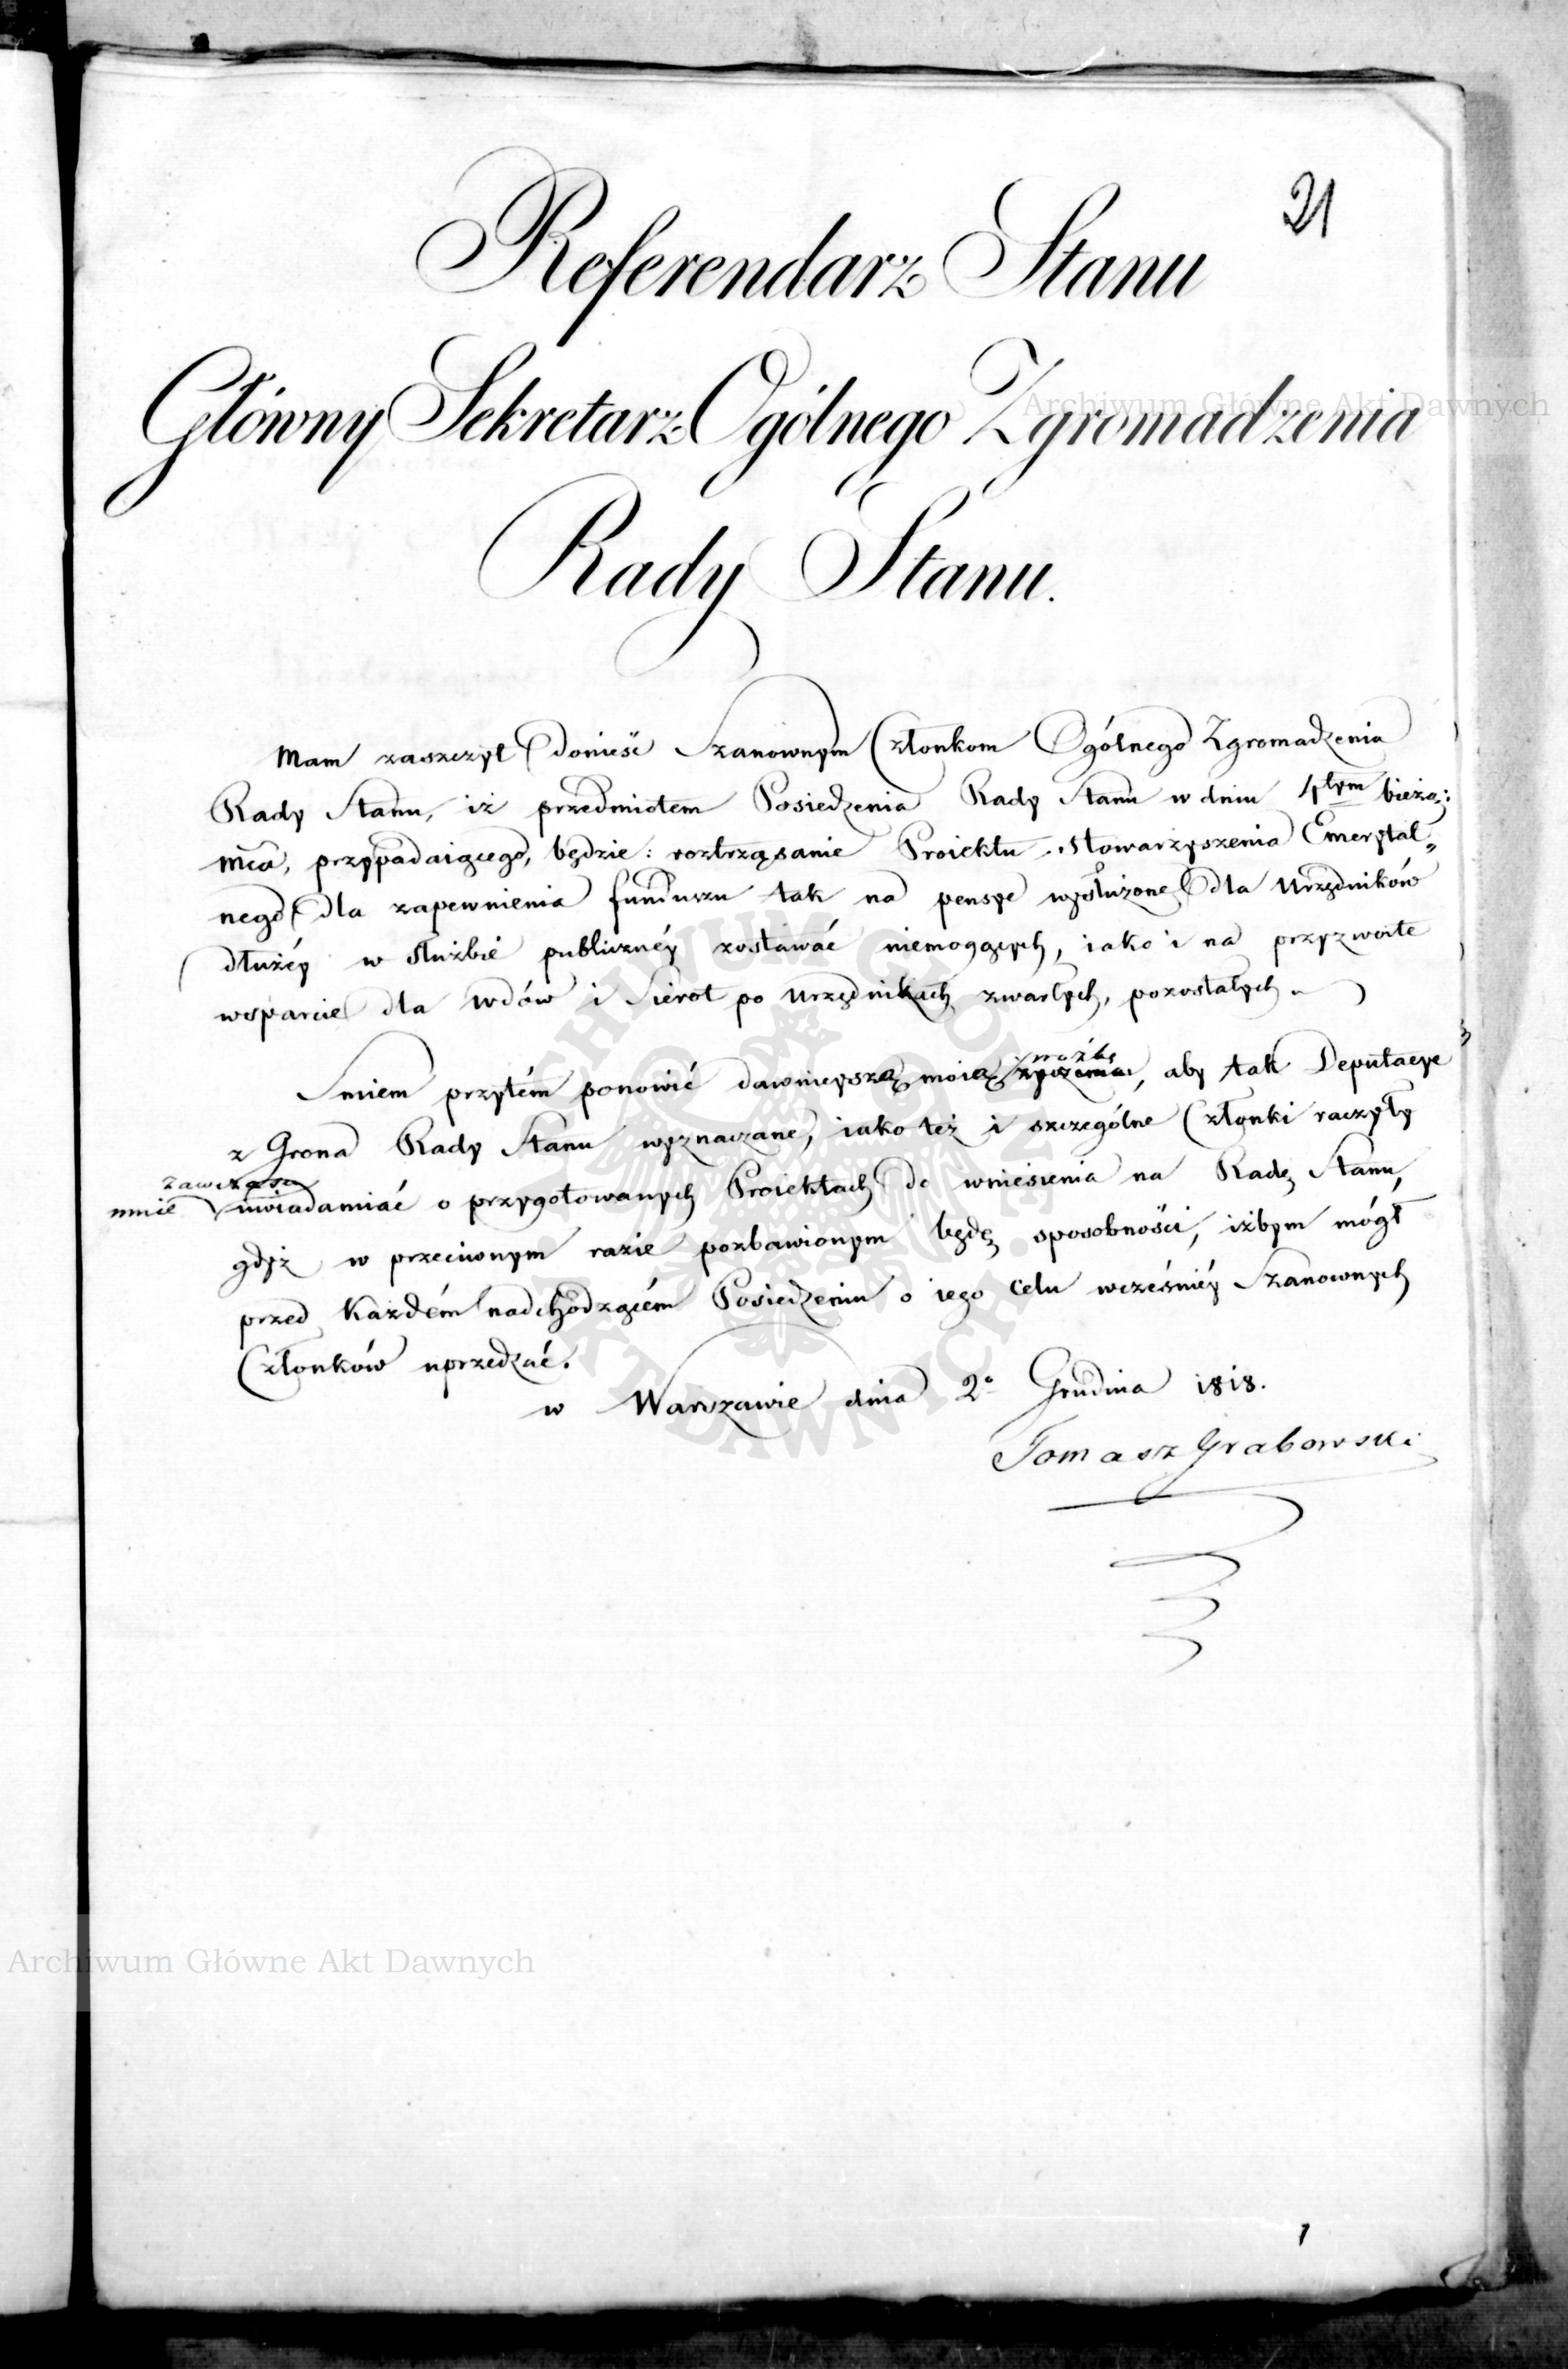 21
Referendarz Stanu
Główny Sekretarz Ogólnego Zgromadzenia
Rady Stanu.
Mam zaszczyt donieść Szanownym Członkom Ogólnego Zgromadzenia
Rady Stanu, iż przedmiotem Posiedzenia Rady Stanu w dniu 4tym bieżą:
mca, przypadaiącego, będzie: roztrząsanie Proiektu Stowarzyszenia Emerytal„
nego dla zapewnienia funduszu tak na pensye wysłużone dla Urzędników
dłużéy w służbie publicznéy zostawać niemogących, iako i na przyzwoite
wsparcie dla wdów i Sierot po Urzędnikach zmarłych, pozostałych.
Smiem przytém ponowić dawnieyszą moią proźbę, aby tak Deputacye
z Grona Rady Stanu wyznaczane, iako też i szczególne Członki raczyły
zawczasu
mnie uwiadamiać o przygotowanych Proiektach do wniesienia na Radę Stanu,
gdyż w przeciwnym razie pozbawionym będę sposobności, iżbym mógł
przed każdém nadchodzącém Posiedzeniu o iego celu wcześniéy Szanownych
Członków uprzedzać.
w Warszawie dnia 2o Grudnia 1818.
Tomasz Grabowski
1
Archiwum Główne Akt Dawnych
Archiwum Główne Akt Dawnych
ARCHIWUM GŁÓWNE AKT DAWNYCH